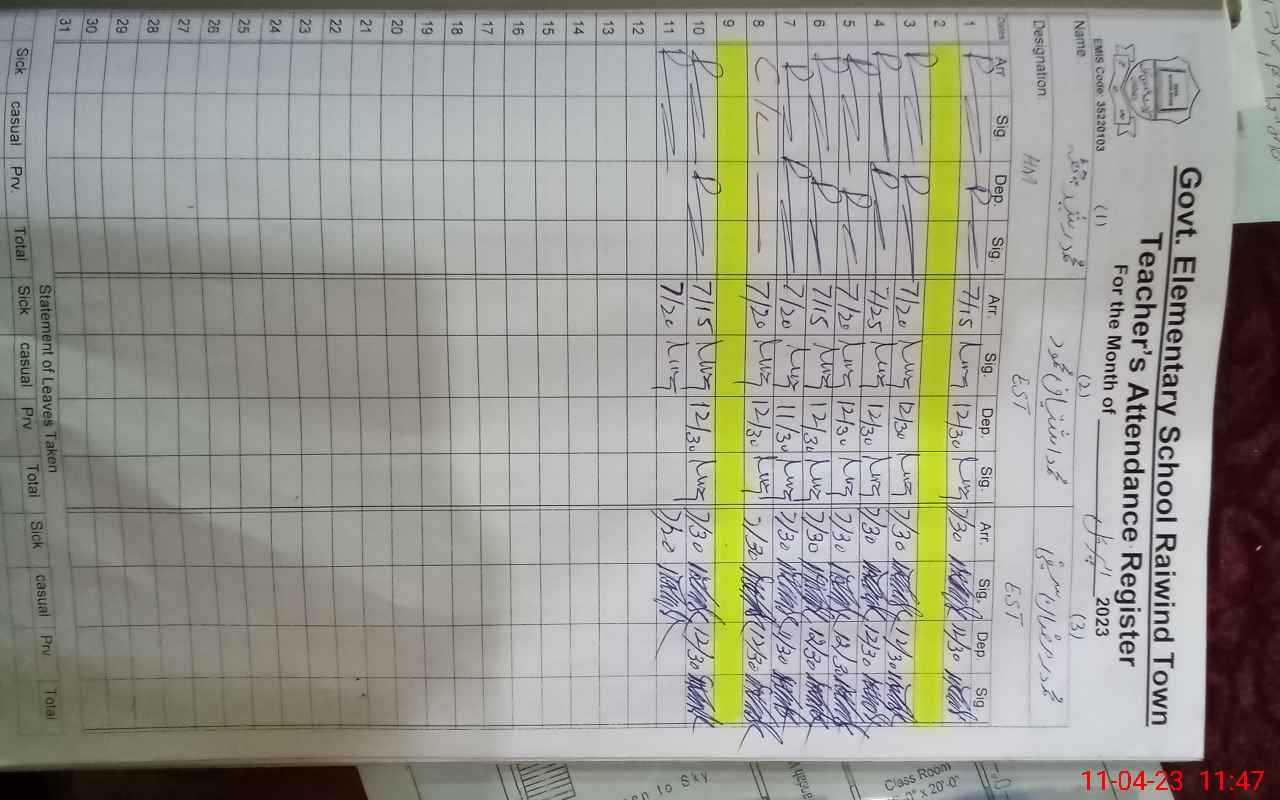 Govt. Elementary School Raiwind Town
Teacher's Attendance Register
For the Month of اپریل 2023
EMIS Code: 35220103
(1) (2) (3)
Name
Designation: HM EST EST
Dates Arr Sig. Dep. Sig. Arr. Sig. Dep. Sig. Arr. Sig. Dep. Sig
1 P P 7/15 12/30 7/30 12/30
2
3 P P 7/20 12/30 7/30 12/30
4 P P 7/25 12/30 7/30 12/30
5 P P 7/20 12/30 7/30 12/30
6 P P 7/15 12/30 7/30 12/30
7 P P 7/20 11/30 7/30 11/30
8 C/L 7/20 12/30 7/30 12/30
9
10 P P 7/15 12/30 7/30 12/30
11 P 7/20 7/20
12
13
14
15
16
17
18
19
20
21
22
23
24
25
26
27
28
29
30
31
Statement of Leaves Taken
Sick casual Prv. Total Sick casual Prv. Total Sick casual Prv Total
Class Room
x 20'-0"
to Sky
11-04-23 11:47